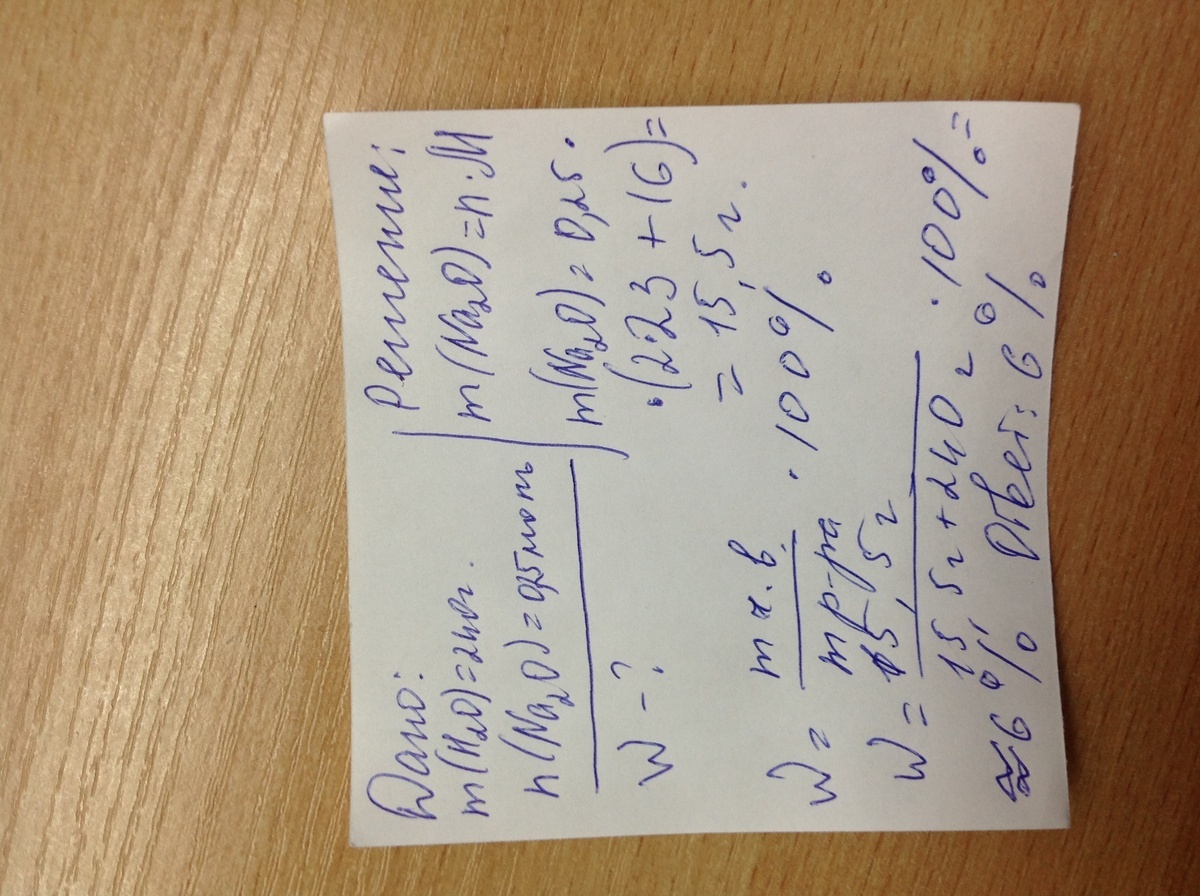 Дано:
m(H₂O)=240г.
n(Na₂O)=0,25моль
W - ?
Решение:
m(Na₂O)=n·M
m(Na₂O)=0,25·
·(2·23+16)=
=15,5г.
W= m ч.в. / m р-ра · 100%.
W= 15,5г / 15,5г+240г · 100%=
≈6% Ответ: 6%